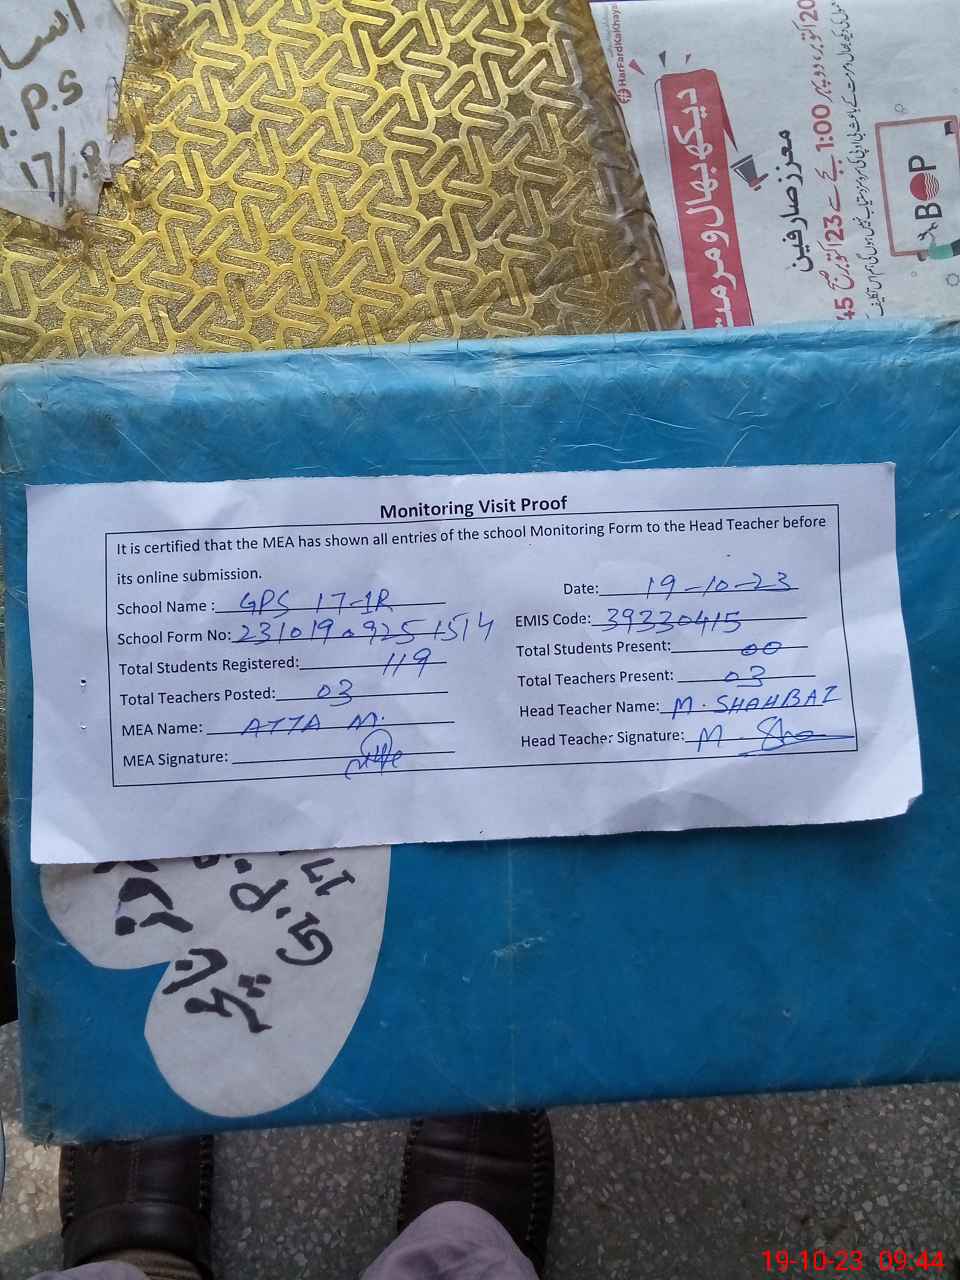 اسا
P.S
17/1.R
HarFardKaKhayal
دیکھ بھال و مرمت
معزز صارفین
BOP
Monitoring Visit Proof
It is certified that the MEA has shown all entries of the school Monitoring Form to the Head Teacher before
its online submission.
School Name : GPS 17-1R Date: 19-10-23
School Form No: 23101909251514 EMIS Code: 39330415
Total Students Registered: 119 Total Students Present: 00
Total Teachers Posted: 03 Total Teachers Present: 03
MEA Name: ATTA M. Head Teacher Name: M. SHAHBAZ
MEA Signature: Head Teacher Signature: M. Sha
19-10-23 09:44